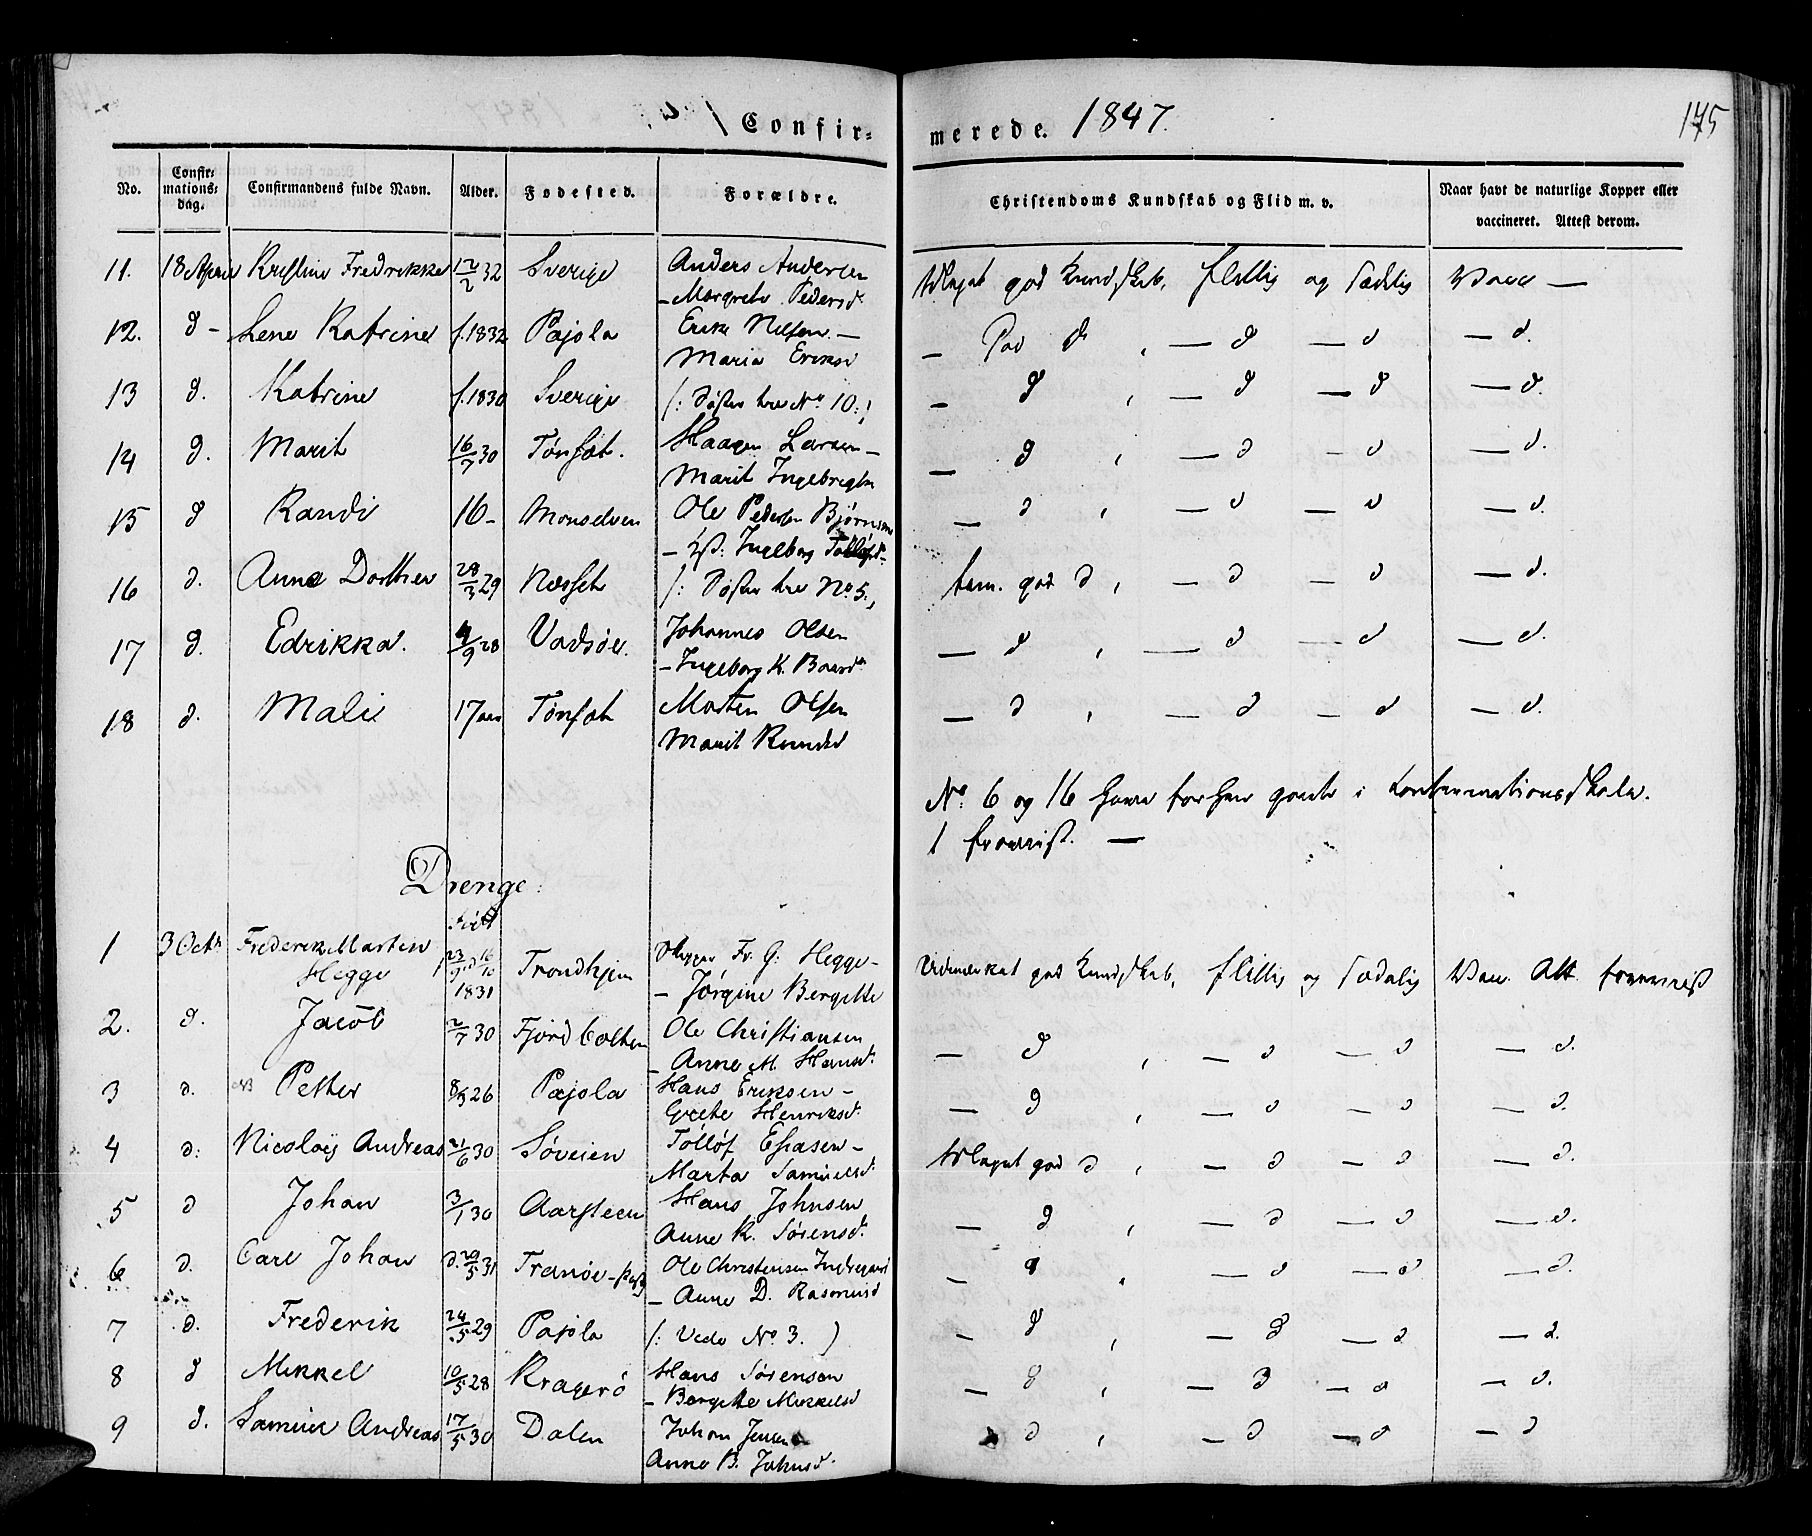 Confir-
merede. 1847.
175
No.
Confir-
mations-
dag.
Confirmandens fulde Navn.
Alder.
Fødested.
Forældre.
Christendoms Kundskab og Flid m. v.
Naar havt de naturlige Kopper eller
vaccineret. Attest derom.
11. 18 April Kristine Fredrikke 12/2 32 Sverige Anders Andersen
– Margrete Pedersd.
god Kundskab, flittig og sædelig Vacc —
12. d – Lene Katrine f. 1832 Pajola Erik Nilsen –
Maria Eriksd
— d , — d — d — d.
13 d. Katrine f. 1830 Sverige /: Søster hre No 10 :/
— d , — d — d — d.
14 d. Marit 16/7 30 Tønset. Haagen Larsen –
Marit Ingebregtn
— d , — d – d — d.
15 d Randi 16 – Monselven Ole Pedersen Bjørn
– Ingeborg Tollefsd.
— d , — d — d — d.
16 d. Anne Dorthea 28/3 29 Nesset /: Søster hre No 5.,
tem. god d , — d — d — d.
17 d. Edrikka. 4/9 28 Vadsøe. Johannes Olsen
– Ingeborg K. Baarsd.
— d , — d — d — d.
18 d. Mali 17 aar Tønset Morten Olsen
Marit Knudsd
— d , — d — d — d.
No. 6 og 16 have forhen gaaet i Confirmationsskole.
1 fraværist. —
Drenge:
født
1 3 Octb Frederik Marten
Hegge
23/9 d 16/10
1831
Trondhjem Fr. G. Hegge –
– Jørgine Bergitte
Udmærket god Kundskab, flittig og sædelig Vac. Att. fremvist
2. d. Jacob 2/7 30 Fjordbotten Ole Christiansen
– Anne M. Hansd.
— d , — d — d — d.
3 d. NB Petter 8/3 26 Pajola Hans Eriksen –
Grete Henriksd.
— d , — d — d — d.
4 d. Nicolay Andreas 21/6 30 Søveien Tollof Esiasen –
Marta Samuelsd.
god d , — d — d — d.
5 d Johan 3/1 30 Aarsteen Hans Johnsen
Anne K. Sørensd.
— d , — d — d — d.
6 d. Carl Johan d. 20/5 31 Tranøe – Ole Christensen
– Anne D. Rasmusd
— d , — d — d — d.
7 d. Frederik 24/5 29 Pajola /: Vide No 3. )
— d , — d — d — d.
8 d Mikkel 10/5 28 Kragerö Hans Sörensen
– Bergitte Mikkelsd
— d , — d — d — d.
9 d. Samuel Andreas 17/5 30 Dalen Johan Jensen
Anne B. Johnsd.
d , — d — d — d